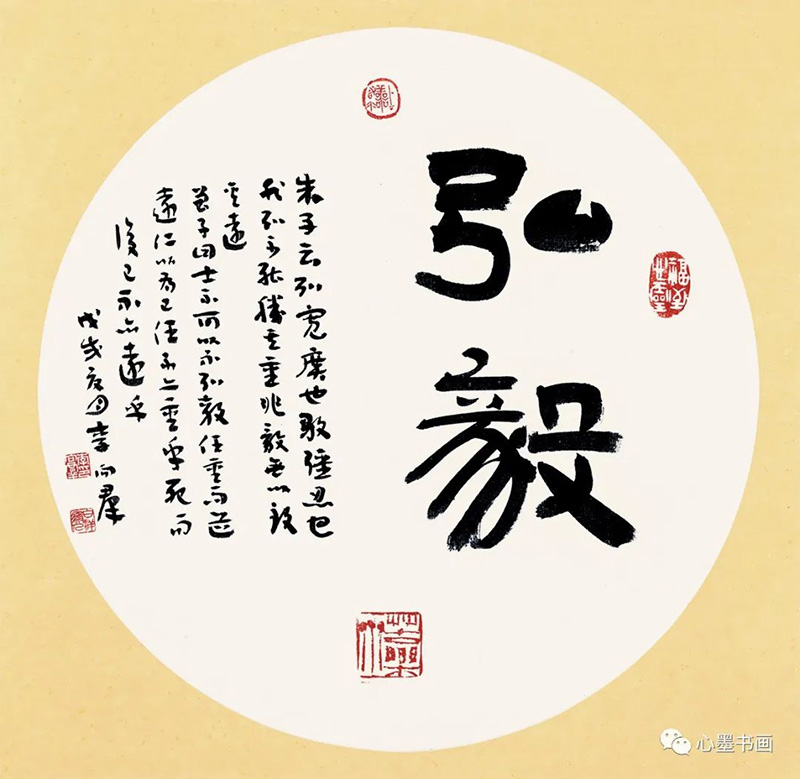 弘毅
朱子云弘寬廣也毅強忍也
非弘不能勝其重非毅無以致
其遠
曾子曰士不可以不弘毅任重而道
遠仁以為己任不亦重乎死而
後已不亦遠乎
戊戌夏月李向羣
心墨书画